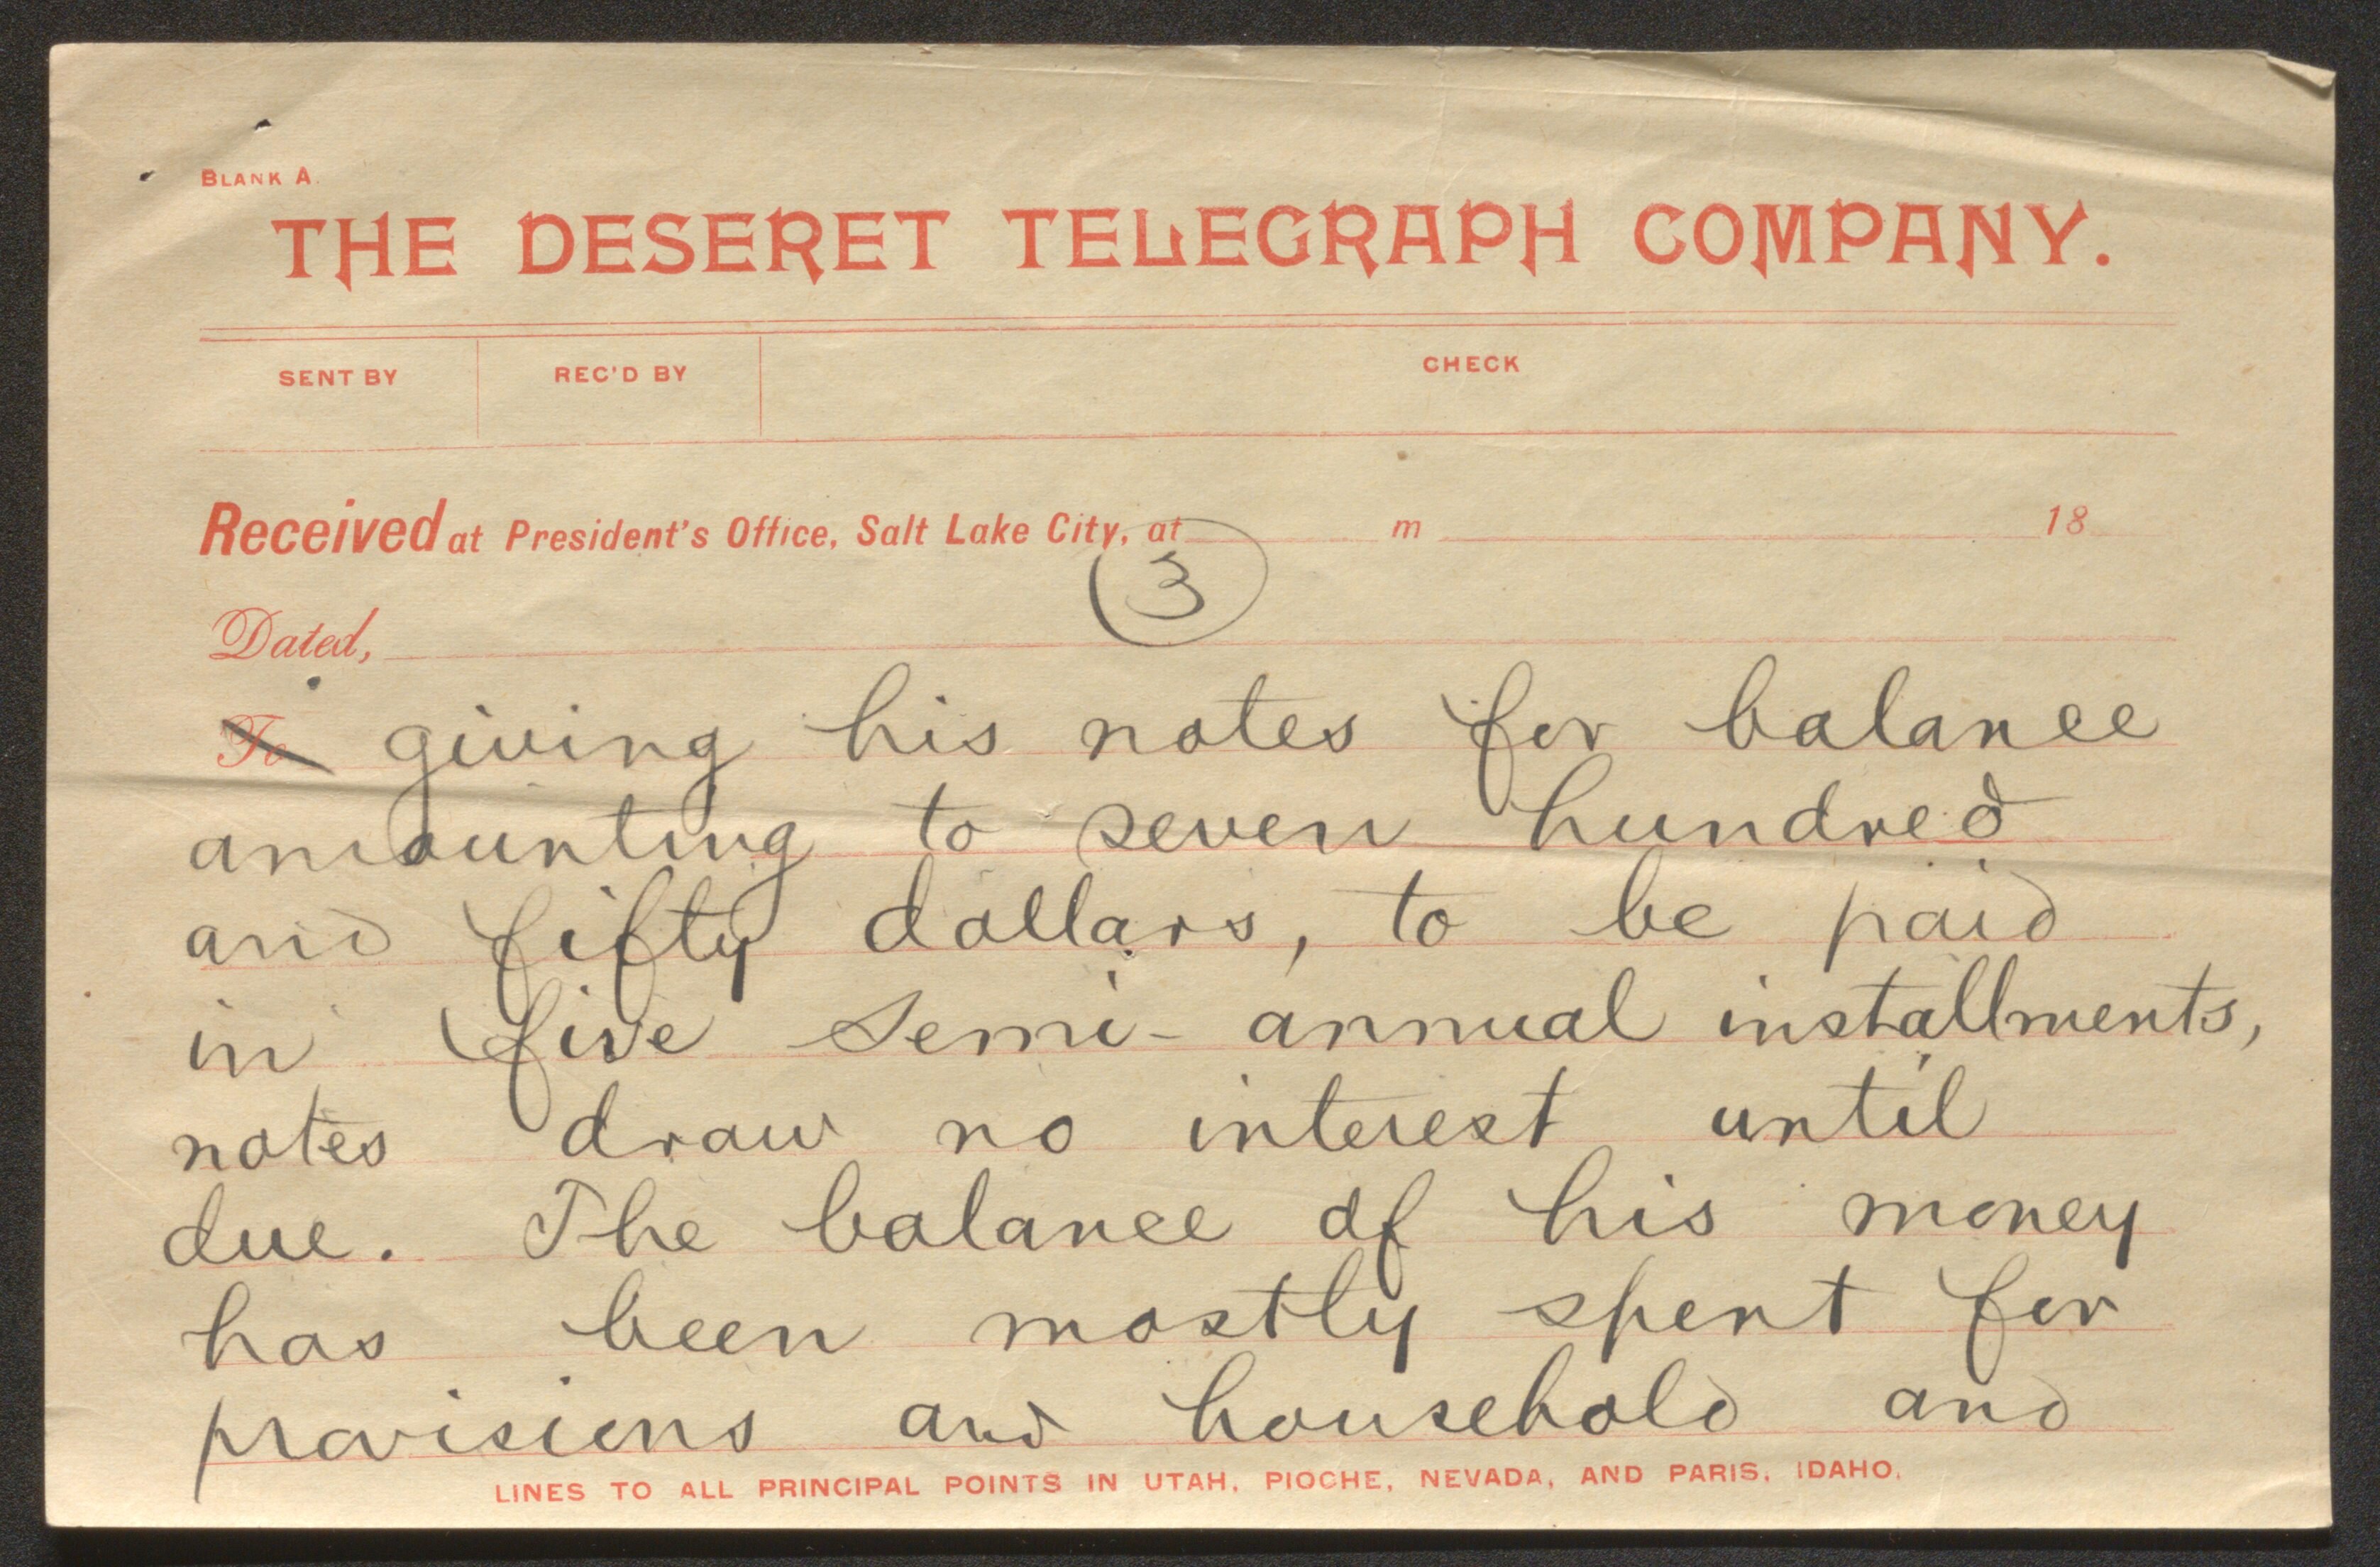 BLANK A.
THE DESERET TELEGRAPH COMPANY.
SENT BY REC'D BY CHECK
Received at President's Office, Salt Lake City, at m 18
3
Dated,
To giving his notes for balance
amounting to seven hundred
and fifty dollars, to be paid
in five semi-annual installments,
notes draw no interest until
due. The balance of his money
has been mostly spent for
provisions and household and
LINES TO ALL PRINCIPAL POINTS IN UTAH, PIOCHE, NEVADA, AND PARIS, IDAHO.